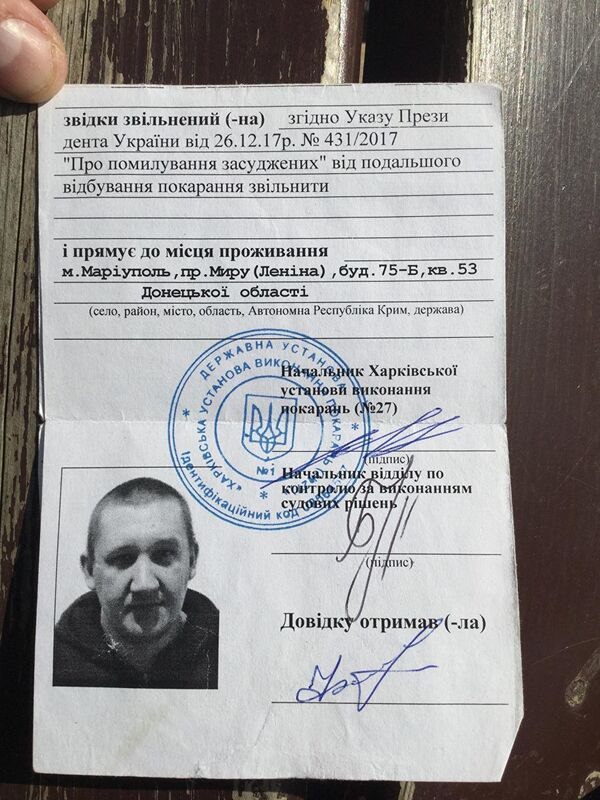 звідки звільнений (-на) згідно Указу Прези
дента України від 26.12.17р. № 431/2017
"Про помилування засуджених" від подальшого
відбування покарання звільнити
і прямує до місця проживання
м.Маріуполь,пр.Миру(Леніна),буд.75-Б,кв.53
Донецької області
(село, район, місто, область, Автономна Республіка Крим, держава)
Начальник Харківської
установи виконання
покарань (№27)
(підпис)
ДЕРЖАВНА УСТАНОВА
«ХАРКІВСЬКА УСТАНОВА ВИКОНАННЯ ПОКАРАНЬ
№1
Ідентифікаційний код
Начальник відділу по
контролю за виконанням
судових рішень
(підпис)
Довідку отримав (-ла)